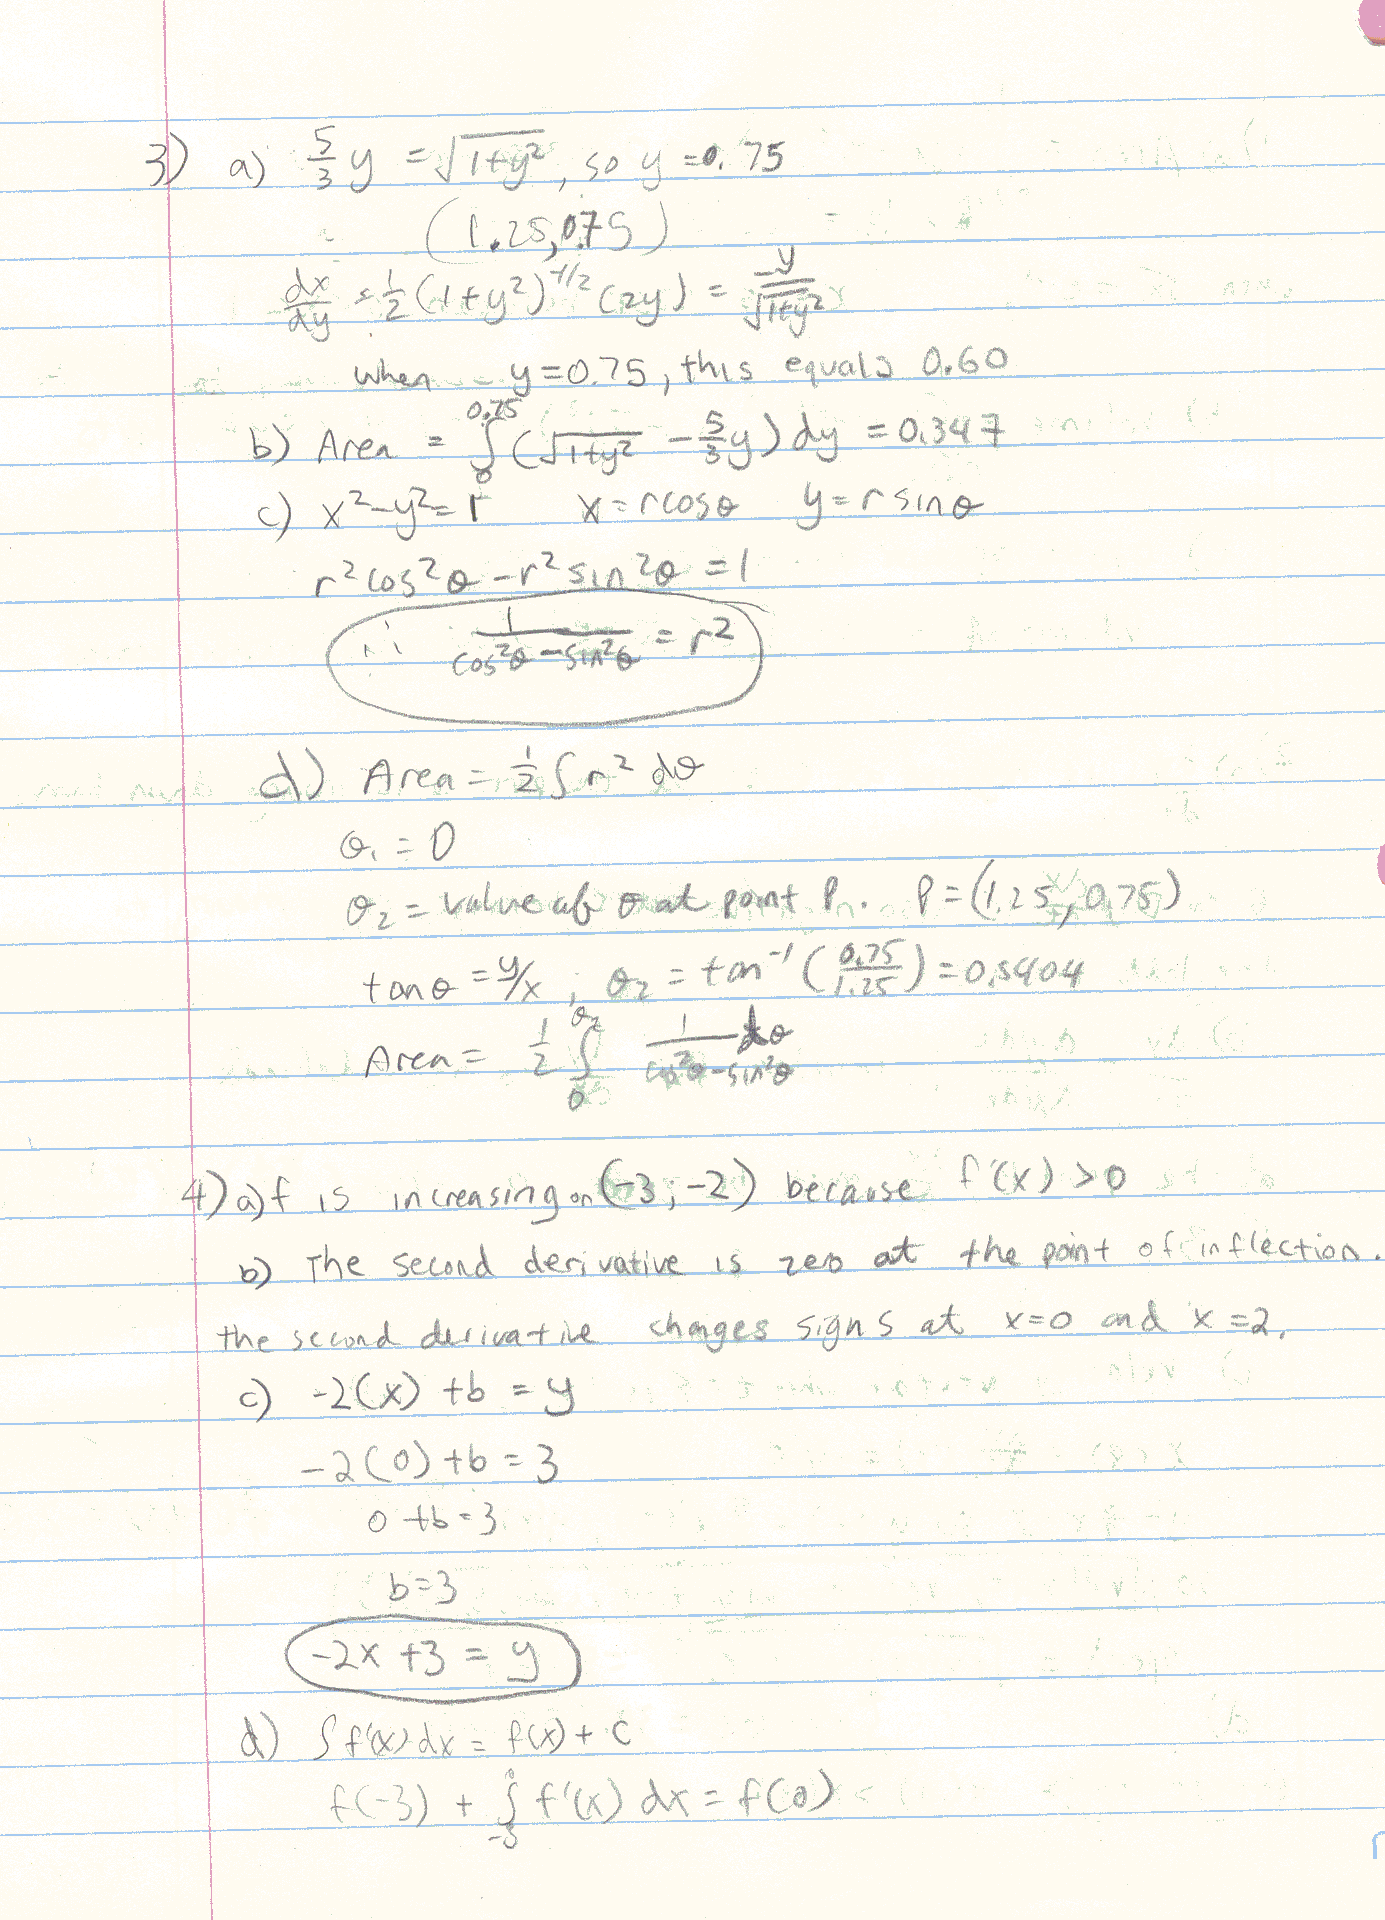 3) a) 5/3 y = √(1+y²), so y = 0.75
(1.25, 0.75)
dx/dy = 1/2 (1+y²)^(-1/2) (2y) = y/√(1+y²)
when y=0.75, this equals 0.60
b) Area = ∫₀^0.75 (√(1+y²) - 5/3 y) dy = 0.347
c) x²-y²=1 x=rcosθ y=rsinθ
r²cos²θ - r²sin²θ = 1
∴ 1/(cos²θ - sin²θ) = r²
d) Area = 1/2 ∫ r² dθ
θ₁ = 0
θ₂ = value of θ at point P. P=(1.25, 0.75)
tanθ = y/x ; θ₂ = tan⁻¹ (0.75/1.25) = 0.5404
Area = 1/2 ∫₀^θ₂ 1/(cos²θ - sin²θ) dθ
4) a) f is increasing on (-3, -2) because f'(x) > 0
b) The second derivative is zero at the point of inflection.
the second derivative changes signs at x=0 and x=2.
c) -2(x) + b = y
-2(0) + b = 3
0 + b = 3
b=3
-2x + 3 = y
d) ∫ f'(x) dx = f(x) + C
f(-3) + ∫₋₃^0 f'(x) dx = f(0)